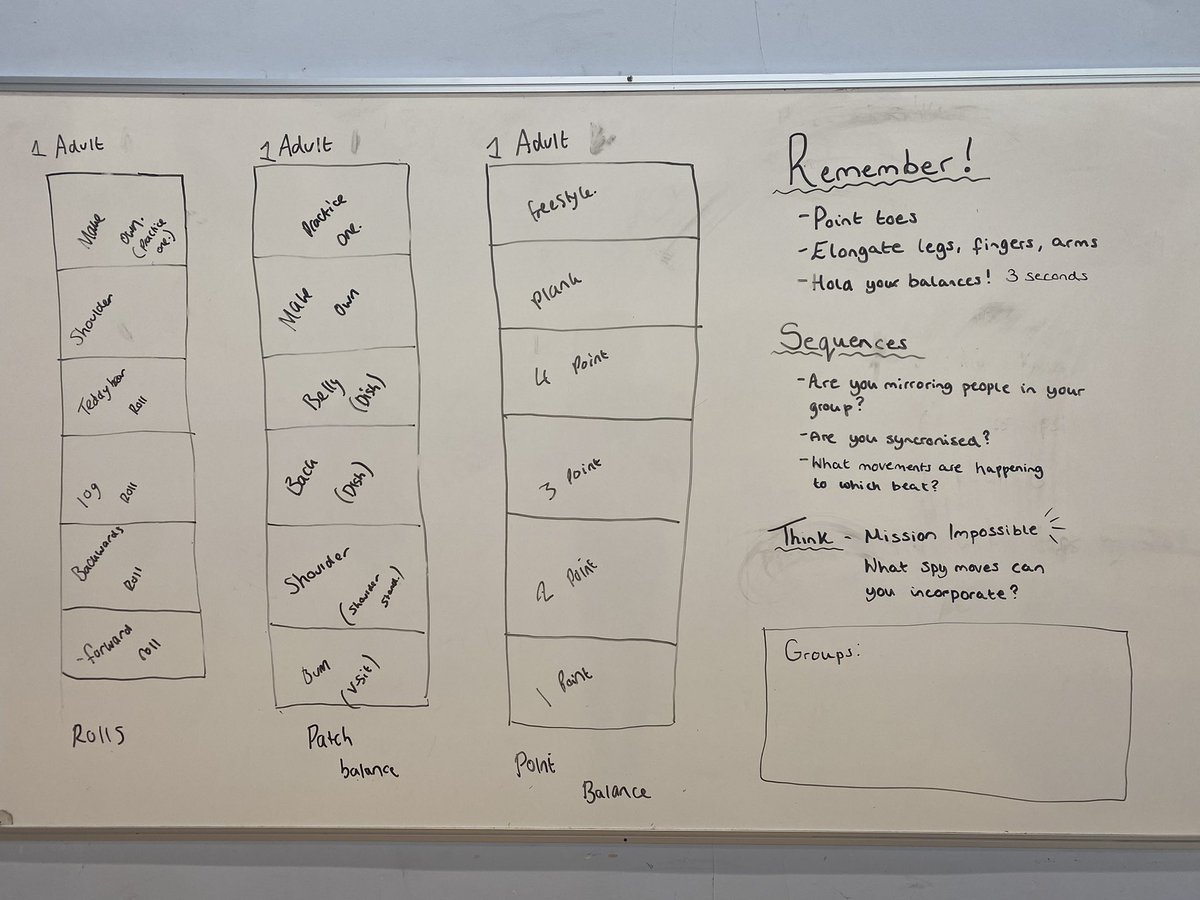 1 Adult
Make own.
(Practice one.)
Shoulder
Teddy bear Roll
log Roll
Backwards Roll
-forward roll
Rolls
1 Adult
Practice one.
Make own
Belly (Dish)
Back (Dish)
Shoulder
(Shoulder stand.)
Bum (V-Sit)
Patch
balance
1 Adult
freestyle.
Plank
4 Point
3 Point
2 Point
1 Point
Point
Balance
Remember!
-Point toes
-Elongate legs, fingers, arms
-Hold your balances! 3 seconds
Sequences
-Are you mirroring people in your
group?
-Are you syncronised?
-What movements are happening
to which beat?
Think - Mission Impossible
What spy moves can
you incorporate?
Groups: